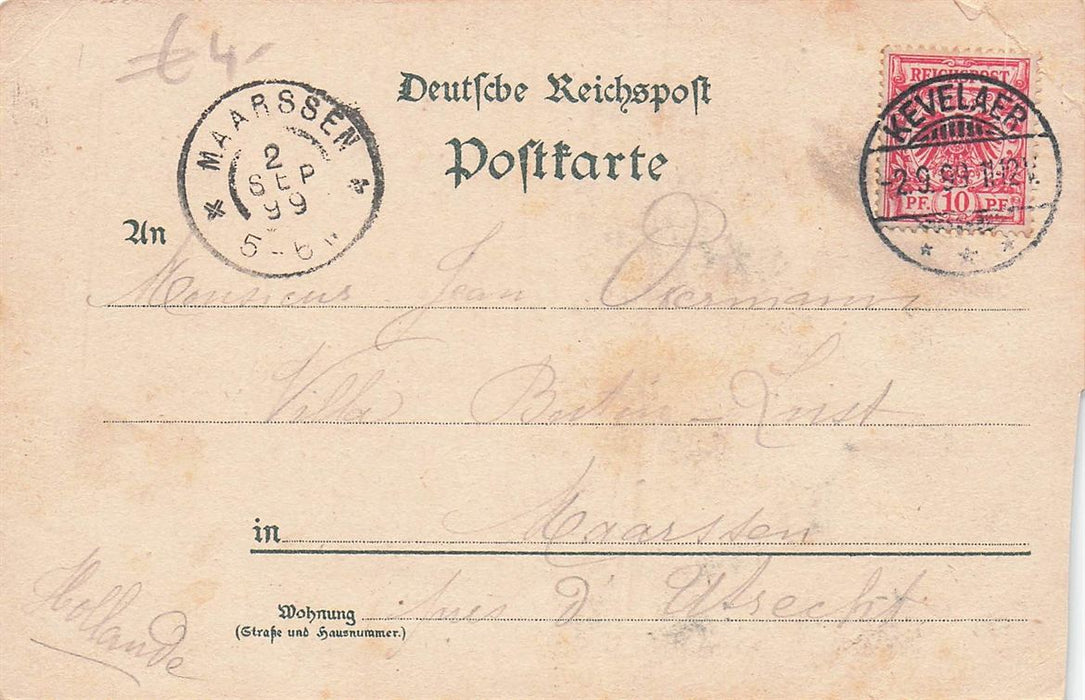 £ 4-
Deutsche Reichspost
Postkarte
MAARSSEN
2
SEP
99
5-6
REICHSPOST
PF. 10 PF.
KEVELAER
-2.9.99. 11-12V.
An
Monsieur Jean
Villa Buiten-Lust
in Maarssen
Wohnung près d' Utrecht
(Straße und Hausnummer.)
Hollande